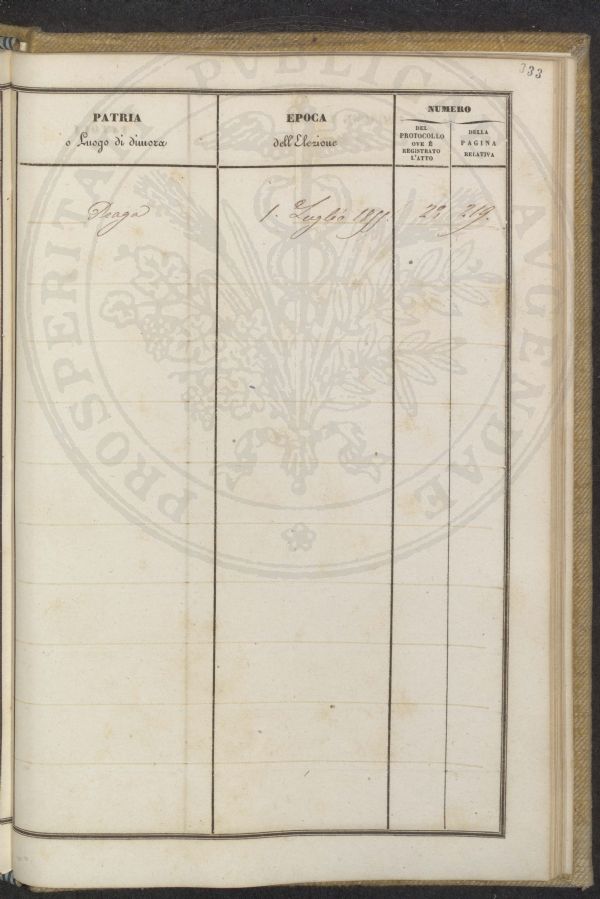 333
PATRIA
o Luogo di dimora
EPOCA
dell'Elezione
NUMERO
DEL
PROTOCOLLO
OVE È
REGISTRATO
L'ATTO
DELLA
PAGINA
RELATIVA
Praga 1. Luglio 219.
PROSPERITATI PUBLICAE AUGENDAE